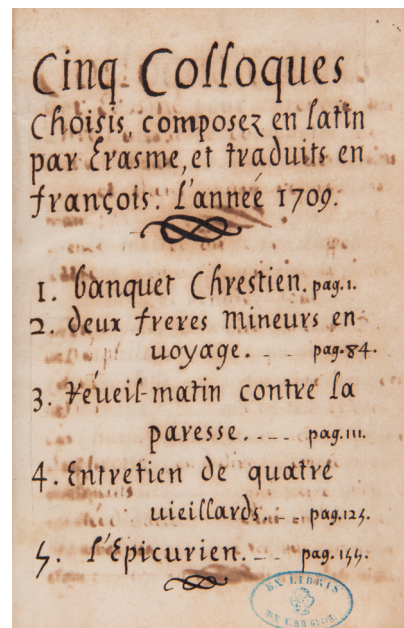 Cinq Colloques
Choisis, composez en latin
par Erasme, et traduits en
françois. l'anneé 1709.
1. banquet Chrestien. pag. 1.
2. deux freres mineurs en
uoyage. . . pag. 84.
3. reueil-matin contre la
paresse. . . . pag. 111.
4. Entretien de quatre
uieillards. . . pag. 125.
5. l'Epicurien. . . pag. 155.
EX LIBRIS